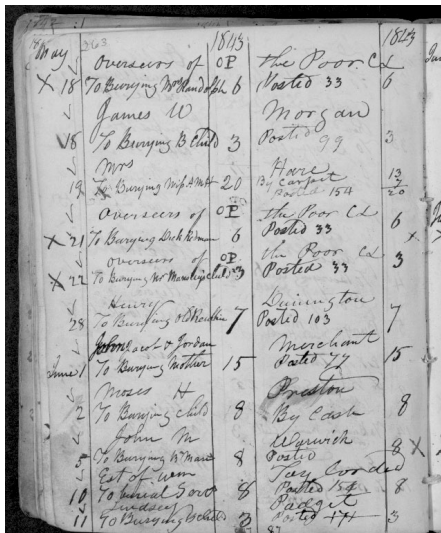 1843 1843
May 263
overseers of OP the Poor Cd
X 18 To Burying Mr Randolph 6 Posted 33 6
James W Morgan
18 To Burying B Child 3 Posted 99 3
Mrs Hare 13
19 To Burying 20 By Carpet 7
Posted 154 20
overseers of OP the Poor Cd
X 21 To Burying Dick Redman 6 Posted 33 6
overseers of OP the Poor Cd
X 22 To Burying Mr child 3 Posted 33 3
Henry Dunnington
28 To Burying Old 7 Posted 103 7
John Jordan Merchant
June 1 To Burying Mother 15 Posted 77 15
Moses H Preston
2 To Burying child 8 By Cash 8
John M Warwick
5 To Burying 8 Posted 8
Est of Wm Tay
10 To burial Servt 8 Posted 154 8
Lindsey Padget
11 To Burying B child 3 Posted 174 3
87